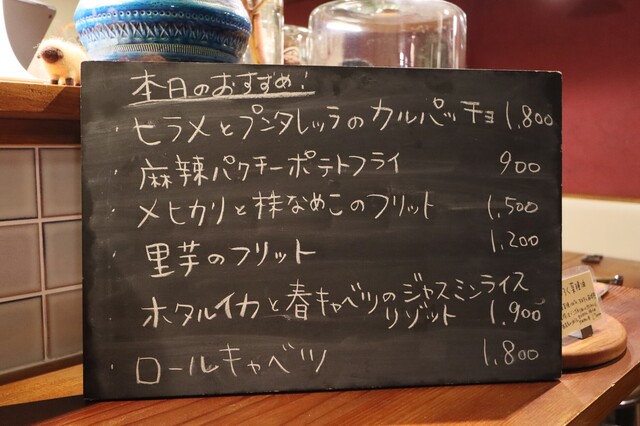 本日のおすすめ!
・ヒラメとプンタレッラのカルパッチョ 1,800
・麻辣パクチーポテトフライ 900
・メヒカリと株なめこのフリット 1,500
・里芋のフリット 1,200
・ホタルイカと春キャベツのジャスミンライス
リゾット 1,900
・ロールキャベツ 1,800